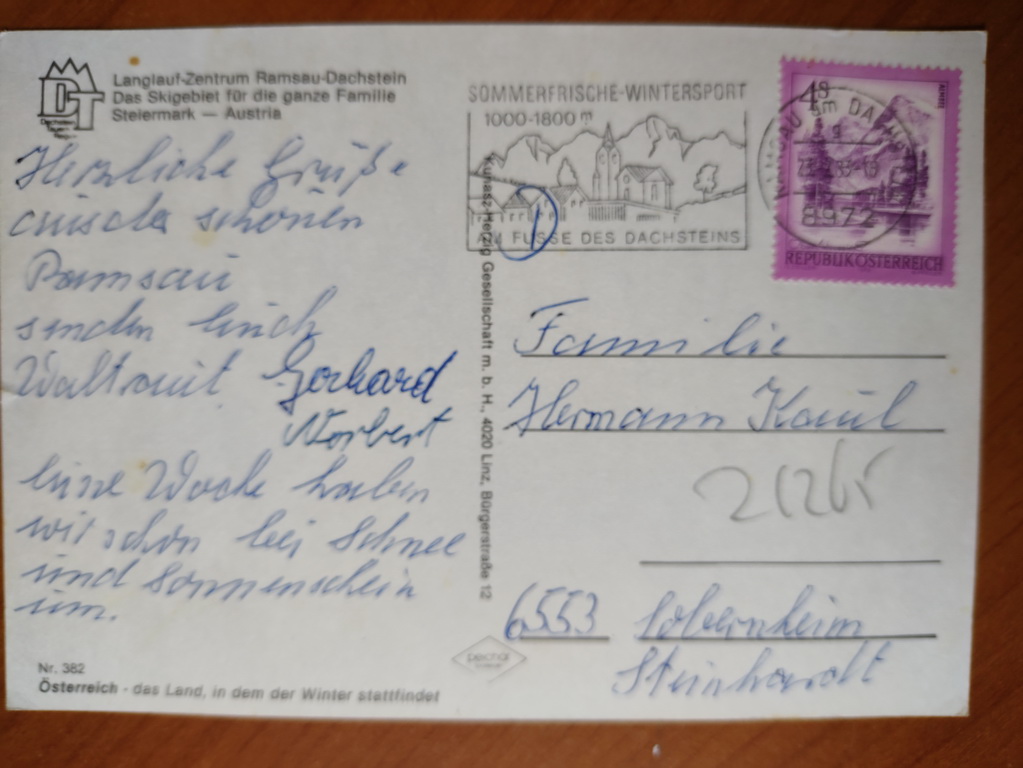 DT
Langlauf-Zentrum Ramsau-Dachstein
Das Skigebiet für die ganze Familie
Steiermark — Austria
Herzliche Grüße
aus der schönen
Ramsau
senden Euch
Waltraut Gerhard
Norbert
Eine Woche haben
wir schon bei Schnee
und Sonnenschein
um.
Nr. 382
Österreich - das Land, in dem der Winter stattfindet
Herzig Gesellschaft m. b. H., 4020 Linz, Bürgerstraße 12
SOMMERFRISCHE-WINTERSPORT
1000-1800 m
AM FUSSE DES DACHSTEINS
1
4 S
ALMSEE
REPUBLIK ÖSTERREICH
8972
Familie
Hermann Kaul
6553 Sobernheim
Steinhardt